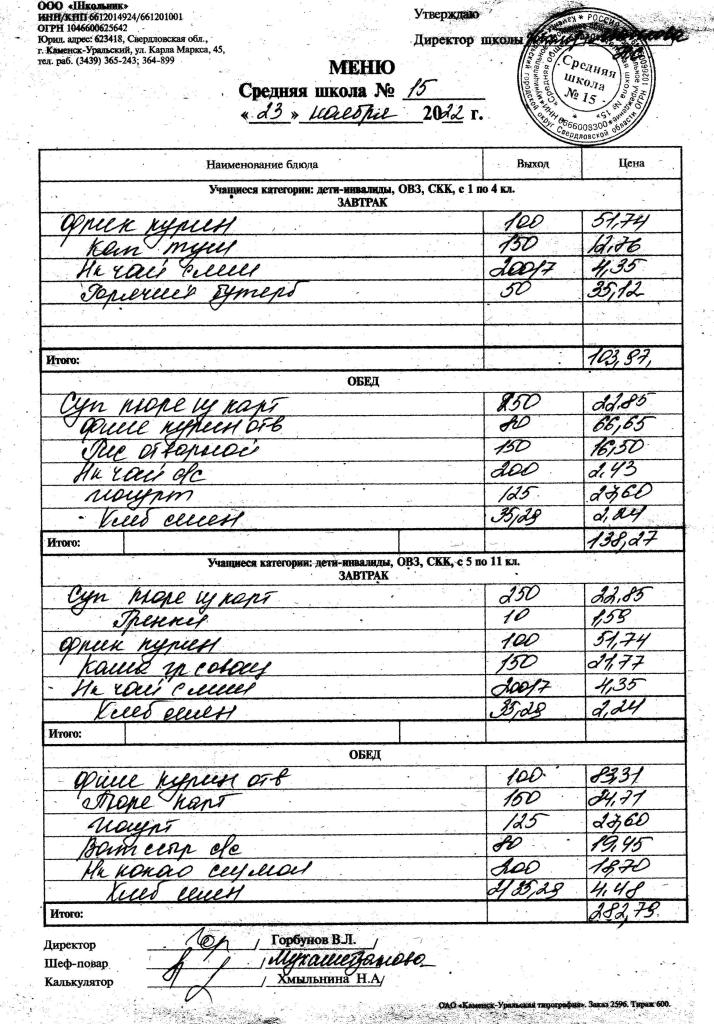 ООО «Школьник»
ИНН/КПП 6612014924/661201001
ОГРН 1046600625642
Юрид. адрес: 623418, Свердловская обл.,
г. Каменск-Уральский, ул. Карла Маркса, 45,
тел. раб. (3439) 365-243; 364-899
Утверждаю
Директор школы
Средняя школа № 15
МЕНЮ
Средняя школа № 15
« 23 » ноября 2022 г.
Наименование блюда Выход Цена
Учащиеся категории: дети-инвалиды, ОВЗ, СКК, с 1 по 4 кл.
ЗАВТРАК
Фрик курин 100 51,74
Кап туш 150 12,76
Нк чай с лим 200/7 4,35
Горячий бутерб 50 35,12
Итого: 103,97
ОБЕД
Суп пюре из карт 250 22,85
Филе курин отв 80 66,65
Рис отварной 150 16,50
Нк чай с/с 200 2,43
Йогурт 125 27,60
Хлеб 35,28 2,24
Итого: 138,27
Учащиеся категории: дети-инвалиды, ОВЗ, СКК, с 5 по 11 кл.
ЗАВТРАК
Суп пюре из карт 250 22,85
Гренки 10 1,59
Фрик курин 100 51,74
Каша гр 150 21,77
Нк чай с лим 200/7 4,35
Хлеб 35,28 2,24
Итого:
ОБЕД
Филе курин отв 100 83,31
Пюре карт 150 24,71
Йогурт 125 27,60
сыр с/с 80 19,45
Нк какао с 200 18,70
Хлеб 2/35,28 4,48
Итого: 282,79
Директор / Горбунов В.Л. /
Шеф-повар /
Калькулятор / Хмыльнина Н.А/
ОАО «Каменск-Уральская типография». Заказ 2596. Тираж 600.